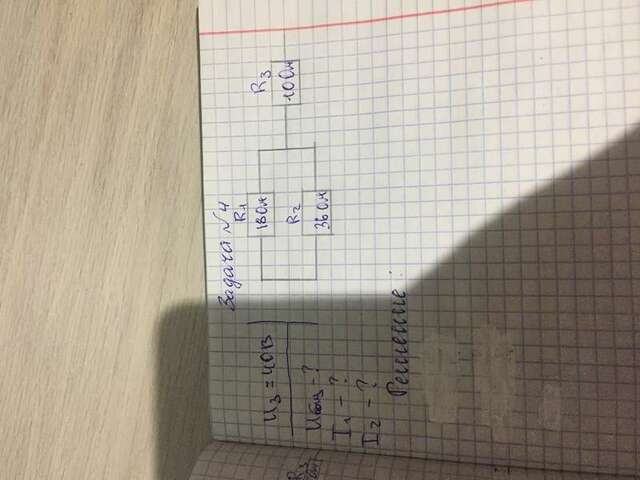 Задача №4
R1
18 Ом
R2
36 Ом
R3
10 Ом
U3 = 40В
Uобщ - ?
I1 - ?
I2 - ?
Решение:
R3